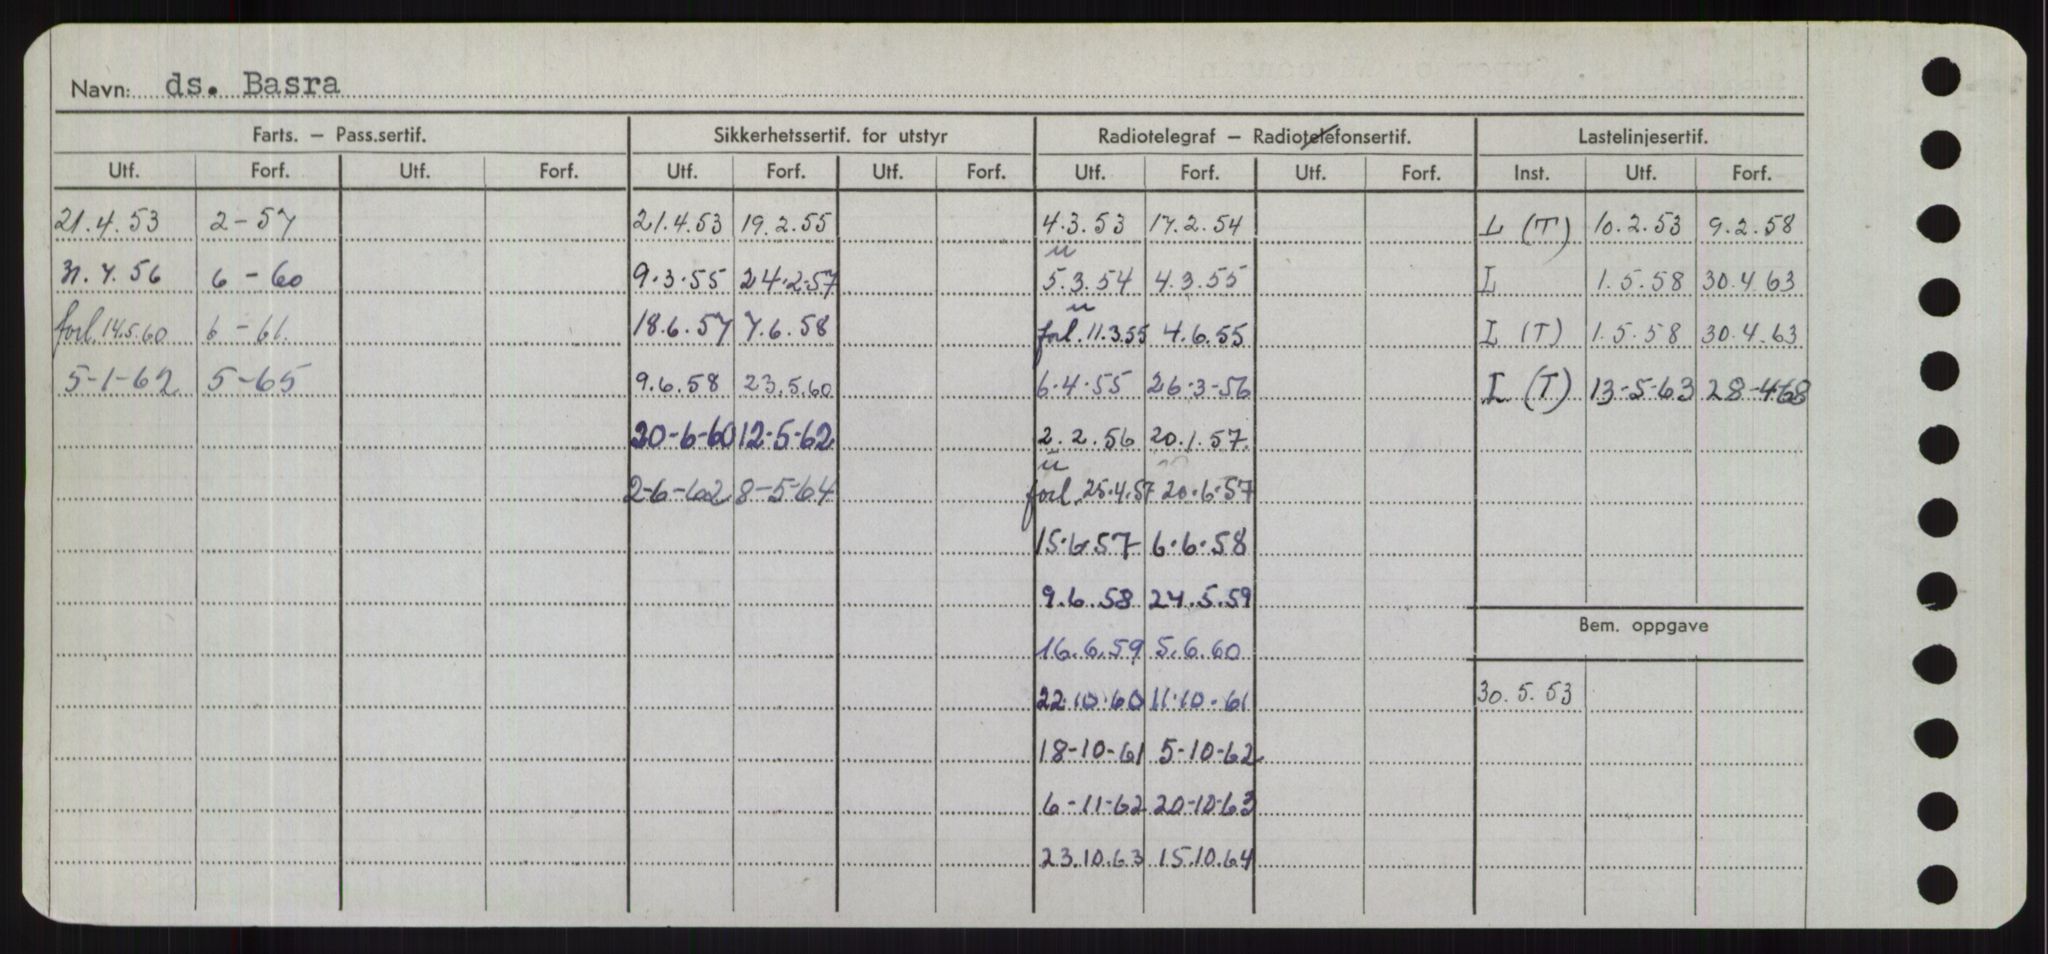 Navn: ds. Basra
Farts. – Pass.sertif. Sikkerhetssertif. for utstyr Radiotelegraf – Radiotelefonsertif. Lastelinjesertif.
Utf. Forf. Utf. Forf. Utf. Forf. Utf. Forf. Utf. Forf. Utf. Forf. Inst. Utf. Forf.
21.4.53 2-57 21.4.53 19.2.55 4.3.53 17.2.54 L (T) 10.2.53 9.2.58
u
7.56 6-60 9.3.55 24.2.57 5.3.54 4.3.55 L 1.5.58 30.4.63
u
forl. 14.5.60 6-61. 18.6.57 7.6.58 forl. 11.3.55 4.6.55 L (T) 1.5.58 30.4.63
5-1-62 5-65 9.6.58 23.5.60 6.4.55 26-3-56 L (T) 13-5-63 28-4-68
20-6-60 12-5-62 2.2.56 20.1.57.
u
2-6-62 8-5-64 forl. 25.4.57 20.6.57
15.6.57 6.6.58
9.6.58 24.5.59
16.6.59 5.6.60
Bem. oppgave
22.10.60 11.10.61 30.5.53
18-10-61 5-10-62
6-11-62 20-10-63
23.10.63 15.10.64